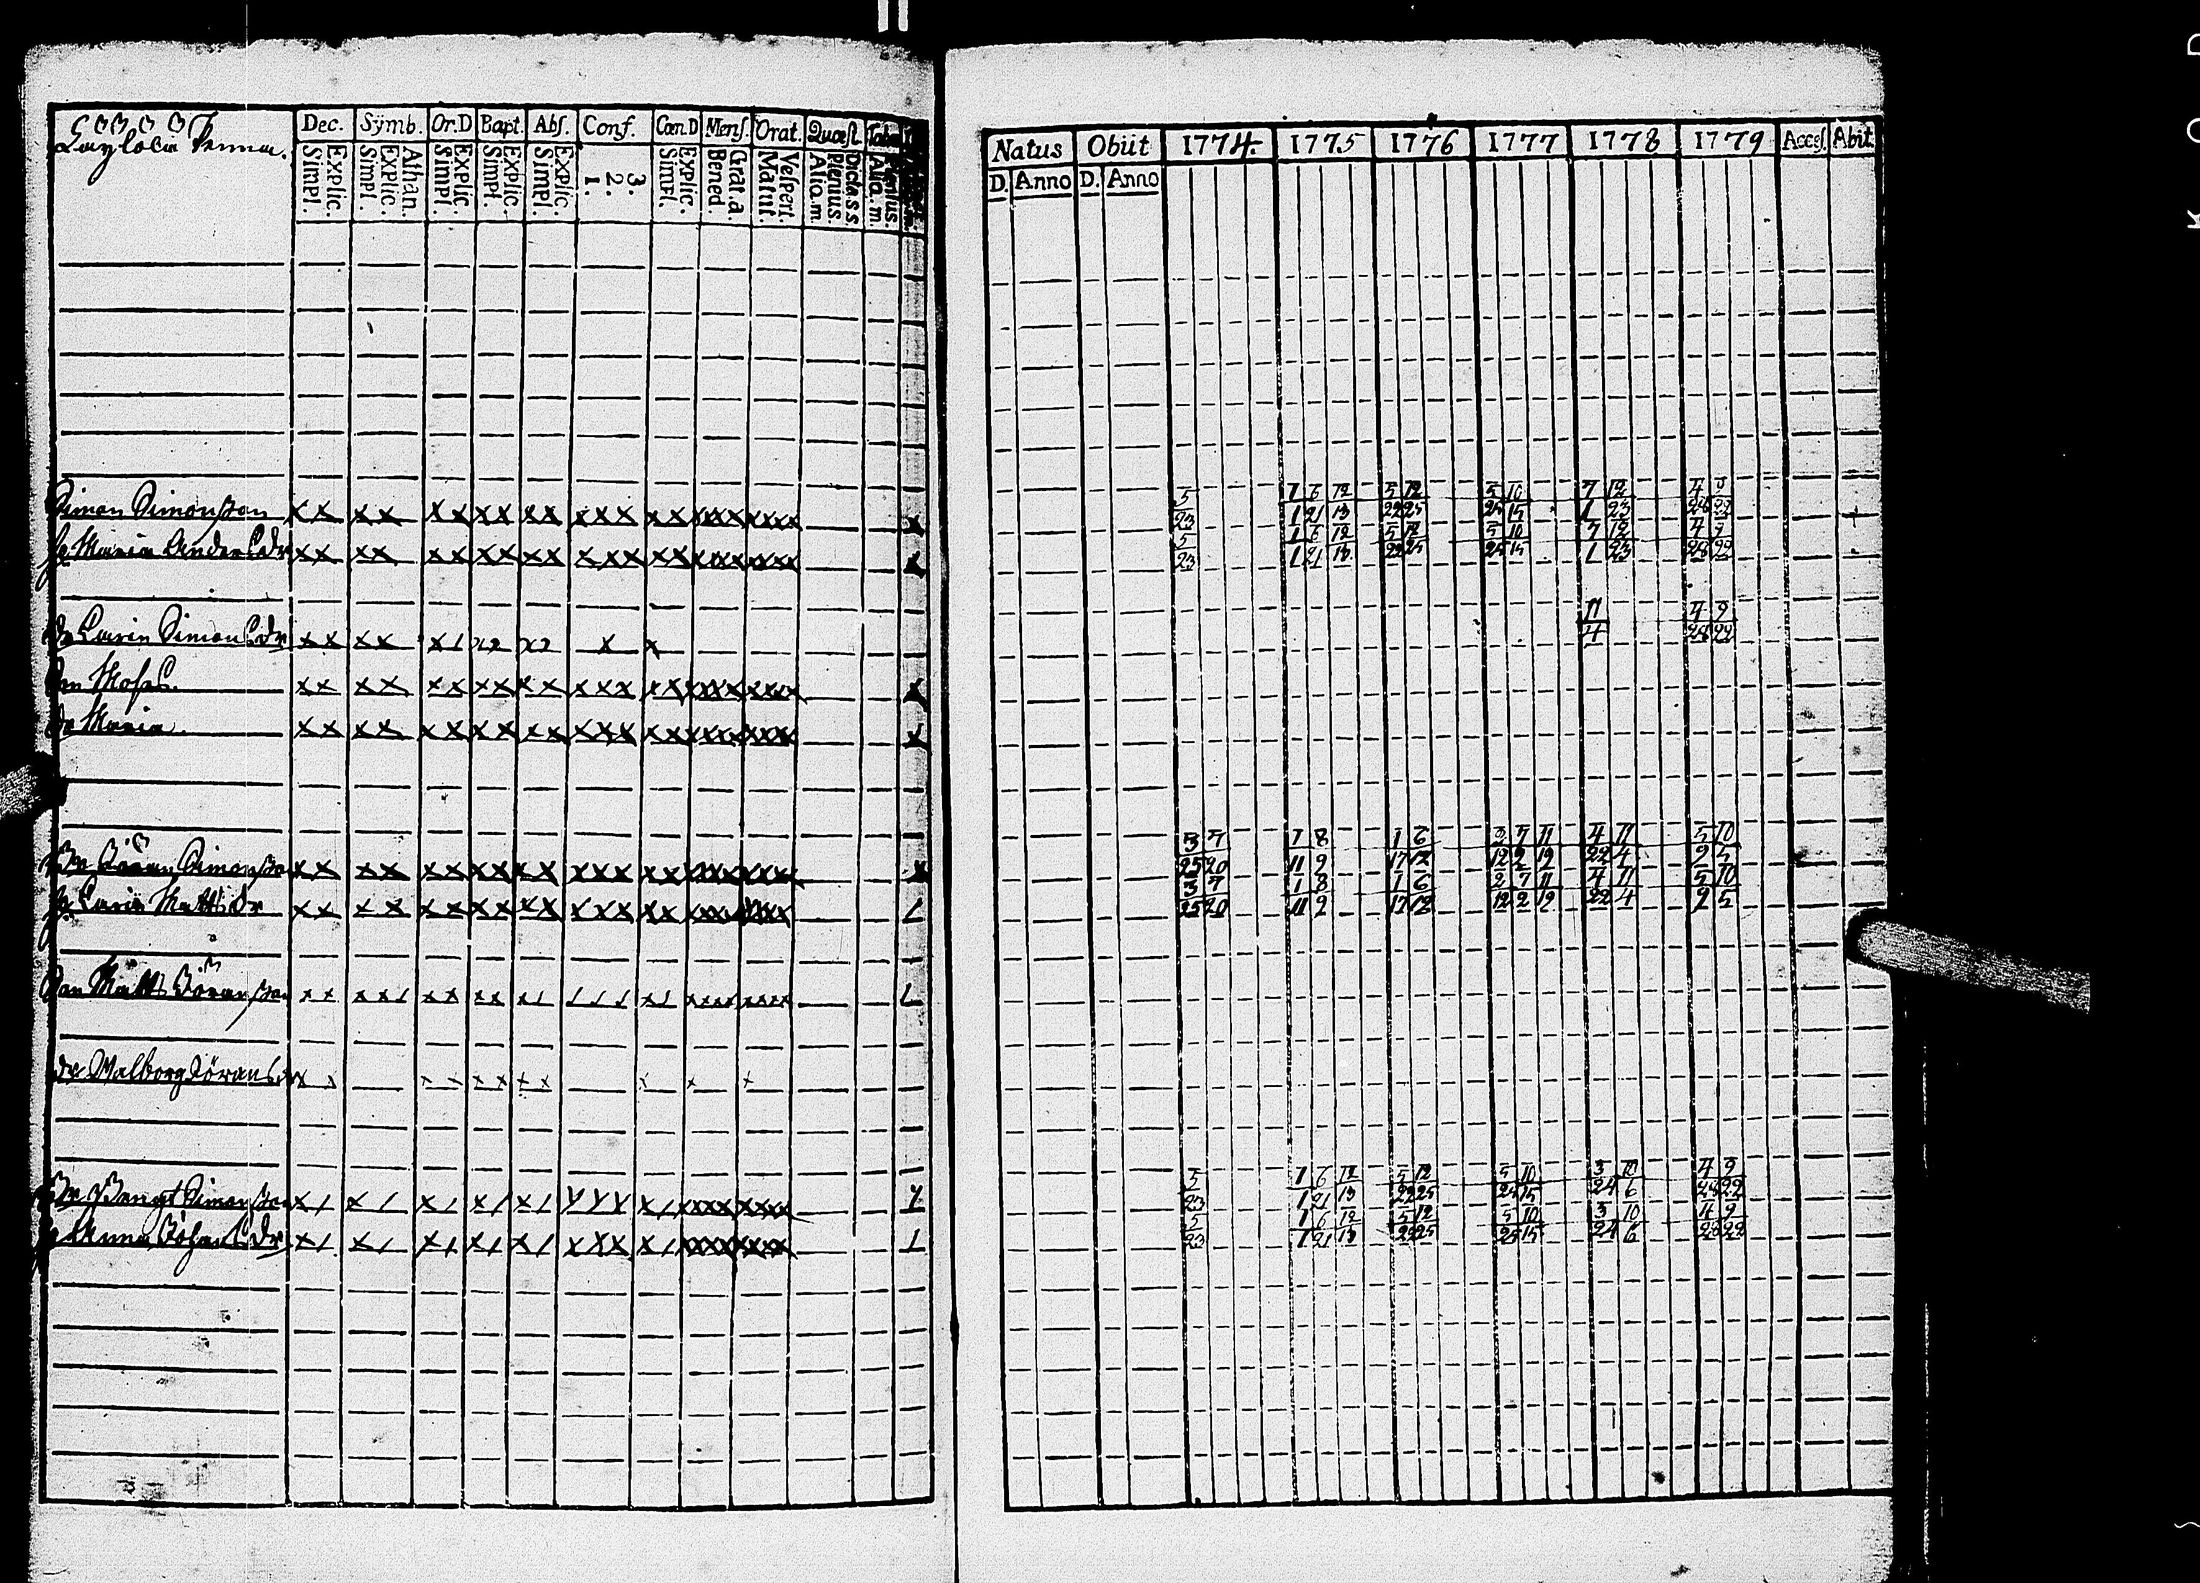 Dec. Symb. Or.D Bapt. Abs. Conf. Cœn.D Mens. Orat. Quæst Tab.
Simpl. Explic. Simpl. Explic. Athan. Simpl. Explic. Simpl. Explic. Simpl. Explic. 1. 2. 3. Simpl. Explic. Bened. Grat. a. Matut. Vespert. Alia.m. Plenius. Dicta.s.s. Alia.m. Plenius.
Simon Simonsson
h Maria Andersdr
dr Carin Simonsdr
Son Mosis.
dr Maria.
Br Jöran Simonsson
h Carin Mattsdr
Son Matts Jöransson
dr Walborg Jöransdr
Br Bengt Simonsson
h Anna Johansdr
Natus Obiit 1774. 1775 1776 1777 1778 1779 Access. Abit.
D. Anno D. Anno
5 1 6 12 5 12 5 10 7 12 4 9
23 1 21 13 22 25 25 15 1 23 28 22
5 1 6 12 5 12 5 10 7 12 4 9
23 1 21 13 22 25 25 15 1 23 28 22
11 4 9
4 28 22
3 7 1 8 1 6 2 7 11 4 11 5 10
25 20 11 9 17 12 12 2 19 22 4 9 5
3 7 1 8 1 6 2 7 11 4 11 5 10
25 20 11 9 17 12 12 2 19 22 4 9 5
5 1 6 12 5 12 5 10 3 10 4 9
23 1 21 13 22 25 25 15 24 6 28 22
5 1 6 12 5 12 5 10 3 10 4 9
23 1 21 13 22 25 25 15 24 6 28 22